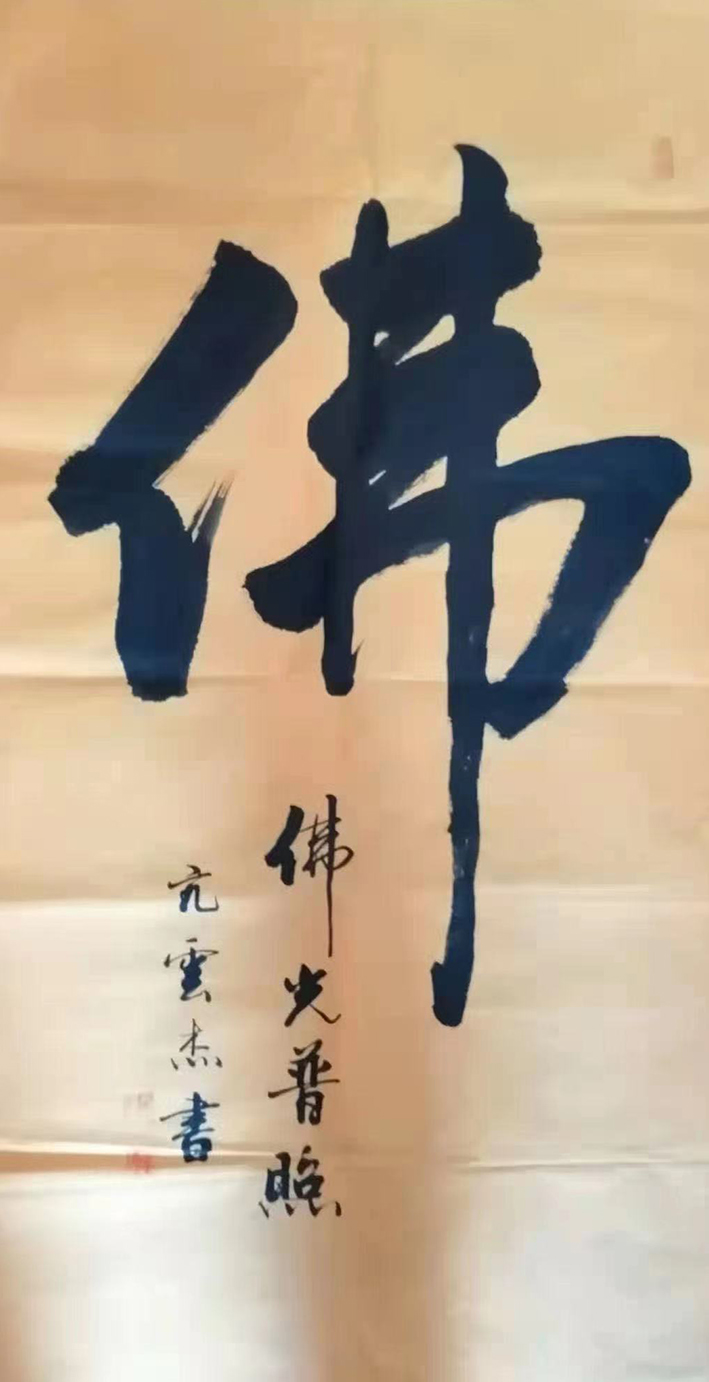 佛
佛光普照
亢雲杰書